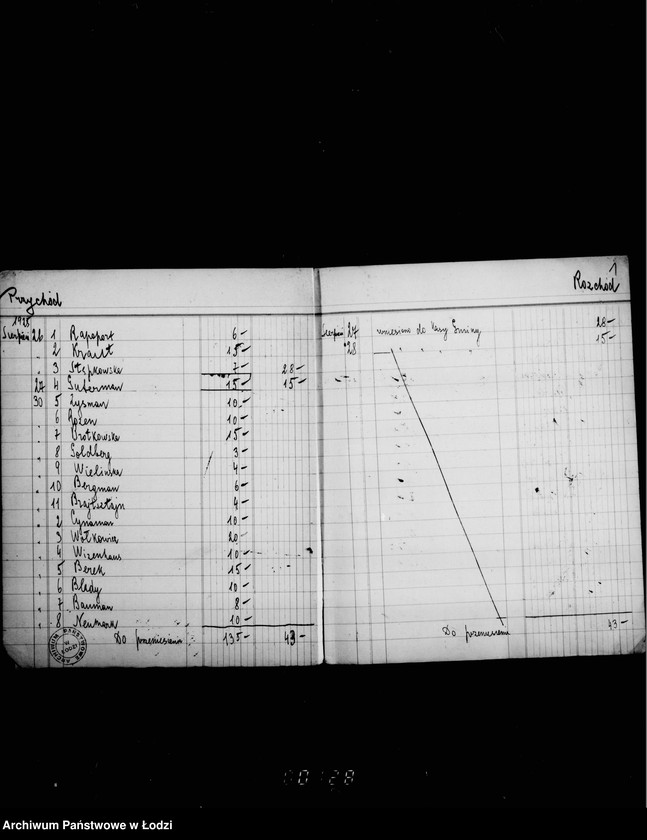 Przychód
1925
Sierpień 26 1 Rapoport 6 -
" 2 Krault 15 -
" 3 Stępkowska 7 - 28 -
" 27 4 Suterman 15 - 15 -
" 30 5 Zysman 10 -
" 6 Rozen 10 -
" 7 15 -
" 8 Goldberg 3 -
" 9 Wielińska 4 -
" 10 Bergman 6 -
" 11 Brajtsztajn 4 -
" 2 Cynaman 10 -
" 3 Wołkowicz 20 -
" 4 Wizenhaus 10 -
" 5 Berek 15 -
" 6 Blady 10 -
" 7 Bauman 8 -
" 8 Neumark 10 -
Do przeniesienia 135 - 43 -
1
Rozchód
Sierpień 27 wniesiono do Kasy Gminy 28 -
" 28 " " " " 15 -
Do przeniesienia 43 -
ARCHIWUM PAŃSTWOWE W ŁODZI
00128
Archiwum Państwowe w Łodzi